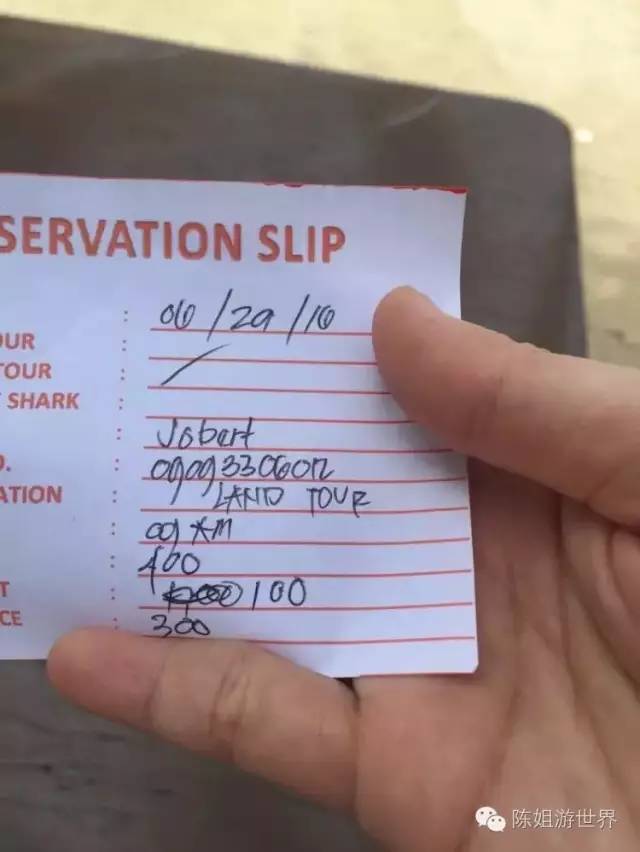 SERVATION SLIP
: 06/29/16
OUR :
TOUR : /
SHARK :
: Jobert
O. : 09093306012
ATION LAND TOUR
: 09 AM
: 400
T : 100
CE : 300
陈姐游世界